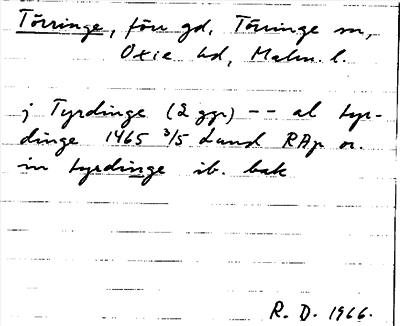 Törringe, förr gd, Törringe sn,
Oxie hd, Malm. l.
j Tyrdinge (2 ggr) -- al tyr-
dinge 1465 3/5 Lund RAp or.
in tyrdinge ib. bak
R. D. 1966.